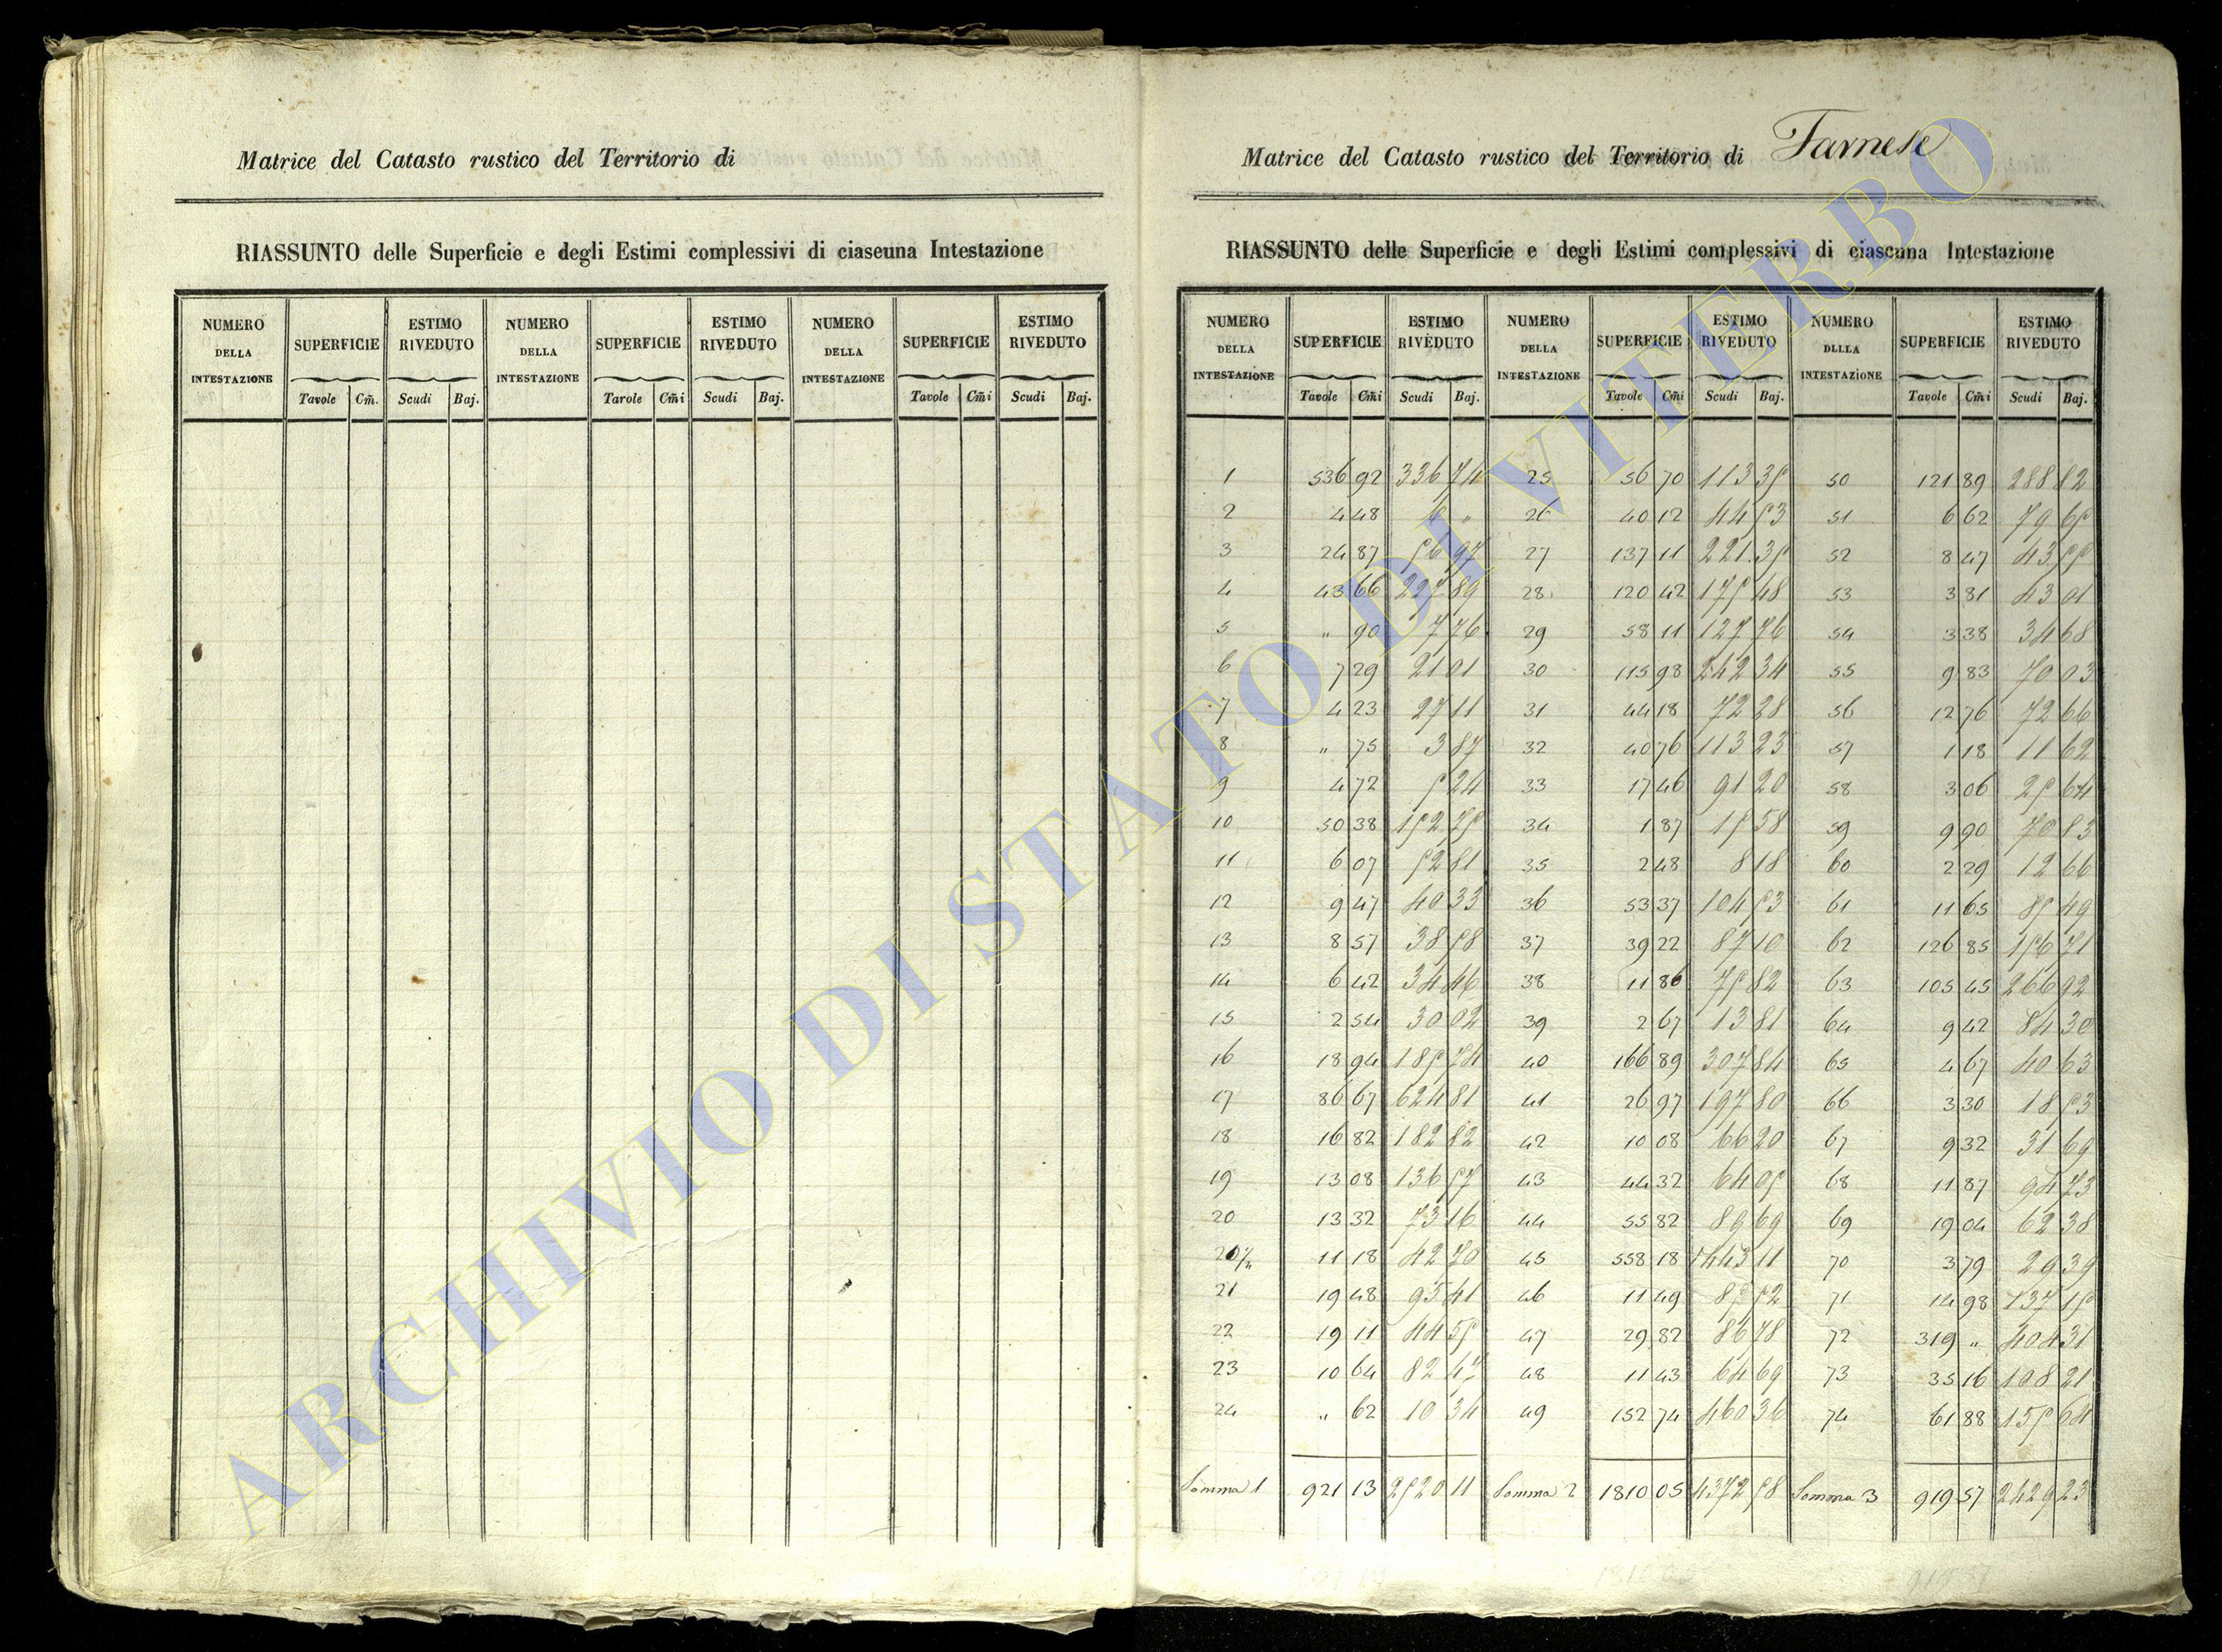 Matrice del Catasto rustico del Territorio di
RIASSUNTO delle Superficie e degli Estimi complessivi di ciascuna Intestazione
NUMERO DELLA INTESTAZIONE SUPERFICIE ESTIMO RIVEDUTO NUMERO DELLA INTESTAZIONE SUPERFICIE ESTIMO RIVEDUTO NUMERO DELLA INTESTAZIONE SUPERFICIE ESTIMO RIVEDUTO
Tavole Cm̃. Scudi Baj. Tavole Cm̃i Scudi Baj. Tavole Cm̃i Scudi Baj.
Matrice del Catasto rustico del Territorio di Farnese
RIASSUNTO delle Superficie e degli Estimi complessivi di ciascuna Intestazione
NUMERO DELLA INTESTAZIONE SUPERFICIE ESTIMO RIVEDUTO NUMERO DELLA INTESTAZIONE SUPERFICIE ESTIMO RIVEDUTO NUMERO DLLLA INTESTAZIONE SUPERFICIE ESTIMO RIVEDUTO
Tavole Cm̃i Scudi Baj. Tavole Cm̃i Scudi Baj. Tavole Cm̃i Scudi Baj.
1 536 92 336 74 25 56 70 113 35 50 121 89 288 82
2 4 48 6 " 26 40 12 44 53 51 6 62 79 65
3 24 87 56 97 27 137 11 221 35 52 8 47 43 55
4 43 66 227 89 28 120 42 175 48 53 3 81 43 01
5 " 90 7 76 29 58 11 127 76 54 3 38 34 68
6 7 29 21 01 30 115 98 242 34 55 9 83 70 03
7 4 23 27 11 31 44 18 72 28 56 12 76 72 66
8 " 75 3 87 32 40 76 113 23 57 1 18 11 62
9 4 72 5 24 33 17 46 91 20 58 3 06 25 64
10 30 38 152 75 34 1 87 15 58 59 9 90 70 83
11 6 07 52 81 35 2 48 8 18 60 2 29 12 66
12 9 47 40 33 36 53 37 104 53 61 11 65 85 49
13 8 57 38 58 37 39 22 87 10 62 126 85 156 71
14 6 42 34 46 38 11 86 75 82 63 105 45 266 92
15 2 54 30 02 39 2 67 13 81 64 9 42 84 30
16 18 94 185 74 40 166 89 307 84 65 4 67 40 63
17 86 67 624 81 41 26 97 197 80 66 3 30 18 53
18 16 82 182 82 42 10 08 66 20 67 9 32 31 69
19 13 08 136 57 43 44 32 64 05 68 11 87 94 73
20 13 32 73 16 44 55 82 89 69 69 19 04 62 38
20½ 11 18 42 70 45 558 18 1443 11 70 3 79 29 39
21 19 48 95 41 46 11 49 85 52 71 14 98 137 15
22 19 11 44 55 47 29 82 86 78 72 319 " 404 31
23 10 64 82 47 48 11 43 64 69 73 35 16 108 21
24 " 62 10 34 49 152 74 460 36 74 61 88 155 64
Somma 1 921 13 2520 11 Somma 2 1810 05 4372 58 Somma 3 919 57 2429 23
ARCHIVIO DI STATO DI VITERBO